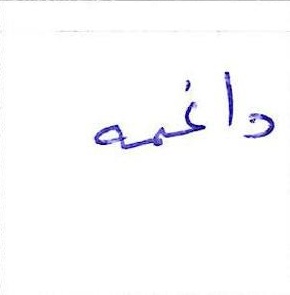 داغمه